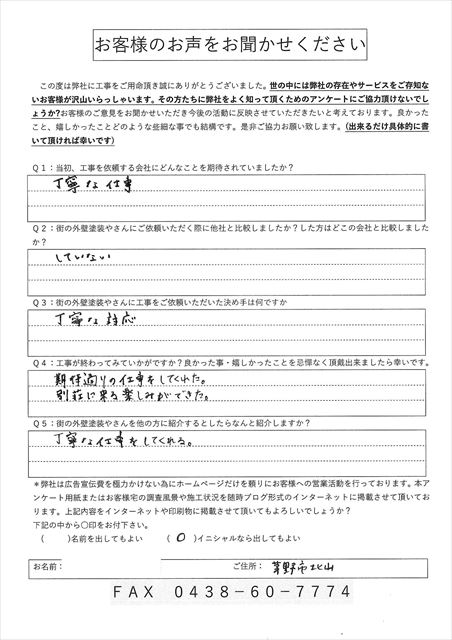 お客様のお声をお聞かせください
この度は弊社に工事をご用命頂き誠にありがとうございました。世の中には弊社の存在やサービスをご存知な
いお客様が沢山いらっしゃいます。その方たちに弊社をよく知って頂くためのアンケートにご協力頂けないでし
ょうか?お客様のご意見をお聞かせいただき今後の活動に反映させていただきたいと考えております。良かった
こと、嬉しかったことどのような些細な事でも結構です。是非ご協力お願い致します。(出来るだけ具体的に書
いて頂ければ幸いです)
Q1:当初、工事を依頼する会社にどんなことを期待されていましたか?
丁寧な仕事
Q2:街の外壁塗装やさんにご依頼いただく際に他社と比較しましたか?した方はどこの会社と比較しました
か?
していない
Q3:街の外壁塗装やさんに工事をご依頼いただいた決め手は何ですか
丁寧な対応
Q4:工事が終わってみていかがですか?良かった事・嬉しかったことを忌憚なく頂戴出来ましたら幸いです。
期待通りの仕事をしてくれた。
別荘に来る楽しみができた。
Q5:街の外壁塗装やさんを他の方に紹介するとしたらなんと紹介しますか?
丁寧な仕事をしてくれる。
*弊社は広告宣伝費を極力かけない為にホームページだけを頼りにお客様への営業活動を行っております。本ア
ンケート用紙またはお客様宅の調査風景や施工状況を随時ブログ形式のインターネットに掲載させて頂いてお
ります。上記内容をインターネットや印刷物に掲載させて頂いてもよろしいでしょうか?
下記の中から〇印をお付下さい。
( )名前を出してもよい ( 〇 )イニシャルなら出してもよい
お名前: ご住所: 茅野市北山
FAX 0438-60-7774